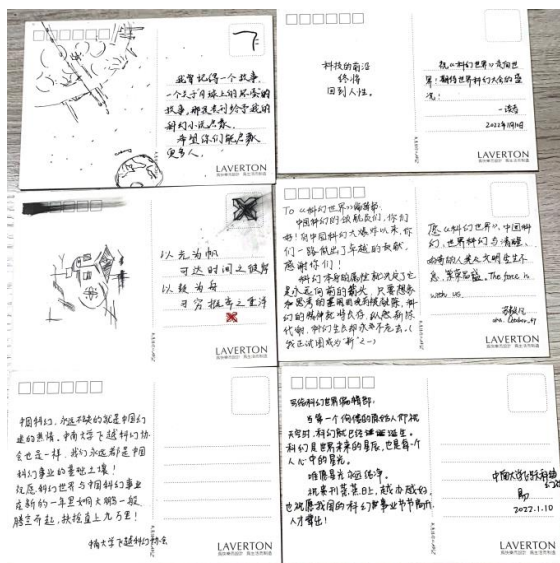 我曾记得一个故事,
一个关于月球上的
故事,那是贵刊给予我的
科幻小说启蒙。
希望你们能启蒙
更多人。
LAVERTON
科技的前沿
终将
回到人性。
祝《科幻世界》走向世
界!期待世界科幻大会的盛
况!
一读者
2022年1月
LAVERTON
以光为帆
可达时间之彼岸
以
可穷
LAVERTON
To 《科幻世界》编辑部:
中国科幻的领航员们,你们
好!自中国科幻大爆炸以来,你
们一路做出了卓越的贡献,
感谢你们!
科幻本身的属性就决定了它
是永远向前的箭头,只要想象
和思考的
幻的精神就将长存,以然新陈
代谢,科幻生长却永不老去。(
我正试图成为"新"之一)
愿《科幻世界》、中国科
幻、世界科幻与清醒、
的人类文明生生不
息,繁荣昌盛。The force is
with us.
LAVERTON
中国科幻,永远不缺的就是中国幻
迷的热情,中南大学飞越科幻协
会也是一样,我们永远都是中国
科幻事业的基础土壤!
祝愿科幻世界与中国科幻事业
在新的一年里如同大鹏一般
腾空而起,扶摇直上九万里!
中南大学飞越科幻协会
LAVERTON
写给科幻世界编辑部:
当第一个
天空时,科幻就已经诞生。
科幻是世界未来的星辰,也是每个
人心中的星光。
唯愿星光永远纯净。
祝贵刊蒸蒸日上,越办越好,
也祝愿我国的科幻事业节节高升,
人才辈出!
中南大学飞跃科幻
2022.1.10
LAVERTON